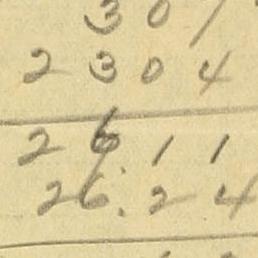 307
2304
2611
26.24